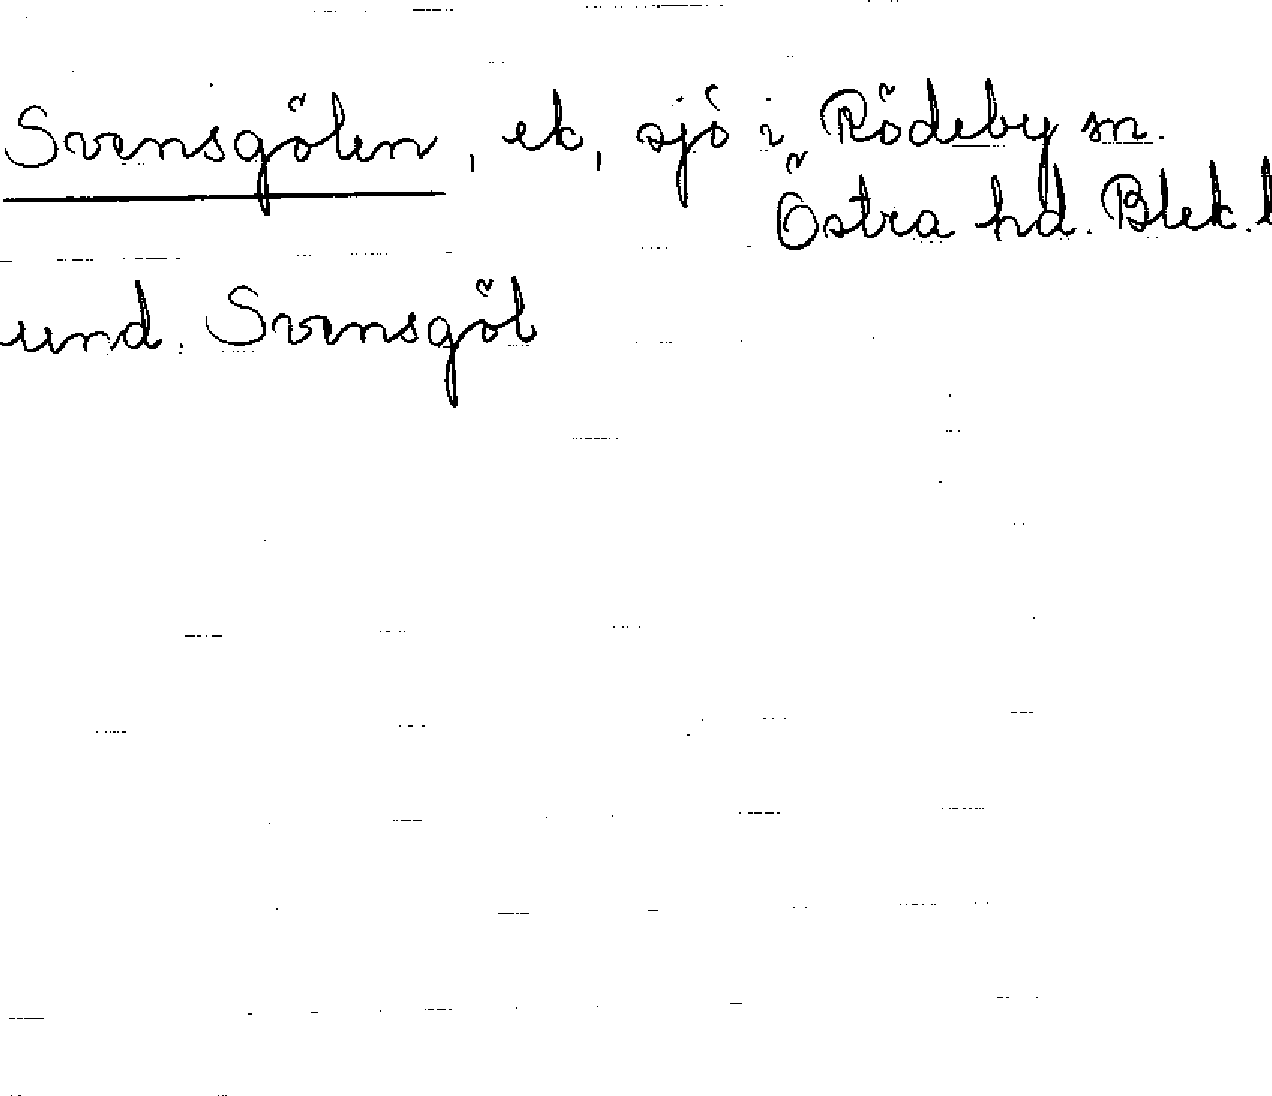 Svensgölen, ek, sjö i Rödeby sn.
Östra hd. Blek. l
und. Svensgöl